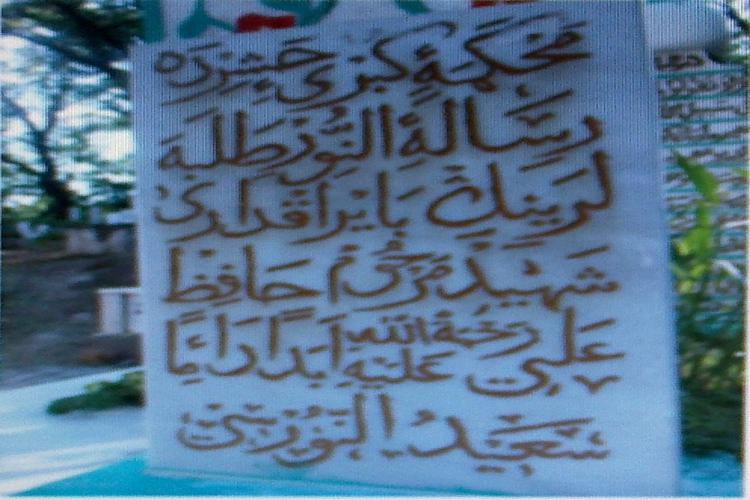 مَحْكَمَۀِ كُبْرٰي حَشِرْدَه
رِسَالَۀِ النُّورْ طَلَبَه
لَرِينِڭ بَايْرَاقْدَارِى
شَهِيدْ مَرْحُومْ حَافِظْ
عَلِي رَحْمَةُ اللّٰهِ عَلَيْهِ اَبَدًا دَائِمًا
سَعِيدُ النُّورْسِي